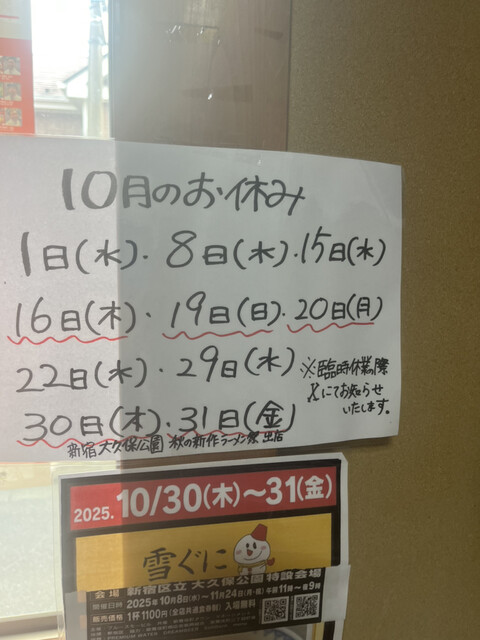 10月のお休み
1日(水)・8日(水)・15日(水)
16日(木)・19日(日)・20日(月)
22日(水)・29日(水)
※臨時休業の際
Xにてお知らせ
いたします。
30日(木)・31日(金)
新宿大久保公園 秋の新作ラーメン祭 出店
2025. 10/30(木)〜31(金)
雪ぐに
会場 新宿区立 大久保公園特設会場
開催日時 2025年10月8日(水)〜11月24日(月・振) 午前11時〜夜9時
販売価格 1杯1100円(全店共通食券制) 入場無料